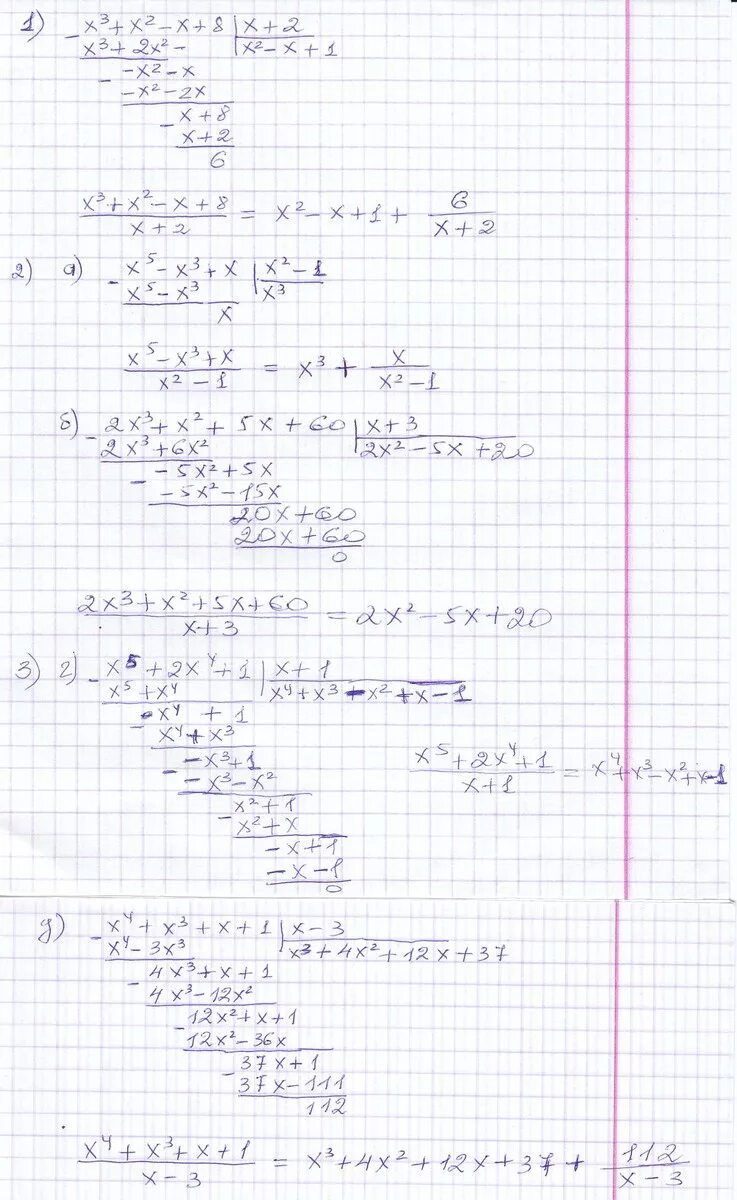 1) - x³ + x² - x + 8 | x + 2
x³ + 2x² - | x² - x + 1
- -x² - x
-x² - 2x
- x + 8
x + 2
6
(x³ + x² - x + 8)/(x + 2) = x² - x + 1 + 6/(x + 2)
2) а) - x⁵ - x³ + x | x² - 1
x⁵ - x³ | x³
x
(x⁵ - x³ + x)/(x² - 1) = x³ + x/(x² - 1)
б) - 2x³ + x² + 5x + 60 | x + 3
2x³ + 6x² | 2x² - 5x + 20
- -5x² + 5x
-5x² - 15x
20x + 60
20x + 60
0
(2x³ + x² + 5x + 60)/(x + 3) = 2x² - 5x + 20
3) г) - x⁵ + 2x⁴ + 1 | x + 1
x⁵ + x⁴ | x⁴ + x³ - x² + x - 1
- x⁴ + 1
x⁴ + x³
- -x³ + 1
-x³ - x²
- x² + 1
x² + x
-x + 1
-x - 1
0
(x⁵ + 2x⁴ + 1)/(x + 1) = x⁴ + x³ - x² + x - 1
д) - x⁴ + x³ + x + 1 | x - 3
x⁴ - 3x³ | x³ + 4x² + 12x + 37
- 4x³ + x + 1
4x³ - 12x²
- 12x² + x + 1
12x² - 36x
- 37x + 1
37x - 111
112
(x⁴ + x³ + x + 1)/(x - 3) = x³ + 4x² + 12x + 37 + 112/(x - 3)